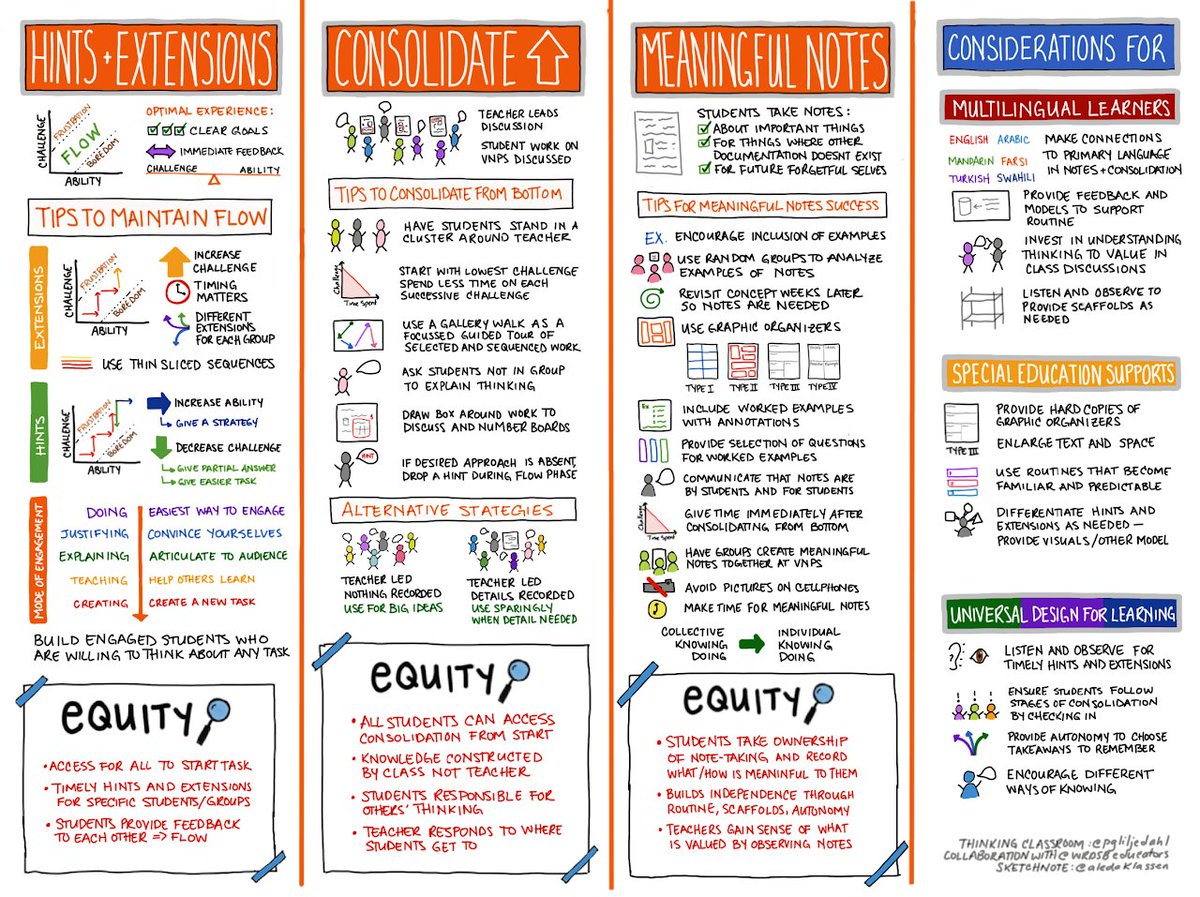 HINTS + EXTENSIONS
CHALLENGE
FRUSTRATION
FLOW
BOREDOM
ABILITY
OPTIMAL EXPERIENCE:
CLEAR GOALS
IMMEDIATE FEEDBACK
CHALLENGE ABILITY
TIPS TO MAINTAIN FLOW
EXTENSIONS
CHALLENGE
FRUSTRATION
BOREDOM
ABILITY
INCREASE
CHALLENGE
TIMING
MATTERS
DIFFERENT
EXTENSIONS
FOR EACH GROUP
USE THIN SLICED SEQUENCES
HINTS
CHALLENGE
FRUSTRATION
BOREDOM
ABILITY
INCREASE ABILITY
GIVE A STRATEGY
DECREASE CHALLENGE
GIVE PARTIAL ANSWER
GIVE EASIER TASK
MODE OF ENGAGEMENT
DOING EASIEST WAY TO ENGAGE
JUSTIFYING CONVINCE YOURSELVES
EXPLAINING ARTICULATE TO AUDIENCE
TEACHING HELP OTHERS LEARN
CREATING CREATE A NEW TASK
BUILD ENGAGED STUDENTS WHO
ARE WILLING TO THINK ABOUT ANY TASK
EQUITY
• ACCESS FOR ALL TO START TASK
• TIMELY HINTS AND EXTENSIONS
FOR SPECIFIC STUDENTS/GROUPS
• STUDENTS PROVIDE FEEDBACK
TO EACH OTHER => FLOW
CONSOLIDATE
TEACHER LEADS
DISCUSSION
STUDENT WORK ON
VNPS DISCUSSED
TIPS TO CONSOLIDATE FROM BOTTOM
HAVE STUDENTS STAND IN A
CLUSTER AROUND TEACHER
Challenge
Time Spent
START WITH LOWEST CHALLENGE
SPEND LESS TIME ON EACH
SUCCESSIVE CHALLENGE
USE A GALLERY WALK AS A
FOCUSSED GUIDED TOUR OF
SELECTED AND SEQUENCED WORK
ASK STUDENTS NOT IN GROUP
TO EXPLAIN THINKING
DRAW BOX AROUND WORK TO
DISCUSS AND NUMBER BOARDS
HINT
IF DESIRED APPROACH IS ABSENT,
DROP A HINT DURING FLOW PHASE
ALTERNATIVE STATEGIES
TEACHER LED
NOTHING RECORDED
USE FOR BIG IDEAS
TEACHER LED
DETAILS RECORDED
USE SPARINGLY
WHEN DETAIL NEEDED
EQUITY
• ALL STUDENTS CAN ACCESS
CONSOLIDATION FROM START
• KNOWLEDGE CONSTRUCTED
BY CLASS NOT TEACHER
• STUDENTS RESPONSIBLE FOR
OTHERS' THINKING
• TEACHER RESPONDS TO WHERE
STUDENTS GET TO
MEANINGFUL NOTES
STUDENTS TAKE NOTES:
ABOUT IMPORTANT THINGS
FOR THINGS WHERE OTHER
DOCUMENTATION DOESNT EXIST
FOR FUTURE FORGETFUL SELVES
TIPS FOR MEANINGFUL NOTES SUCCESS
EX. ENCOURAGE INCLUSION OF EXAMPLES
USE RANDOM GROUPS TO ANALYZE
EXAMPLES OF NOTES
REVISIT CONCEPT WEEKS LATER
SO NOTES ARE NEEDED
USE GRAPHIC ORGANIZERS
TYPE I TYPE II TYPE III TYPE IV
Ex
INCLUDE WORKED EXAMPLES
WITH ANNOTATIONS
PROVIDE SELECTION OF QUESTIONS
FOR WORKED EXAMPLES
COMMUNICATE THAT NOTES ARE
BY STUDENTS AND FOR STUDENTS
Challenge
Time Spent
GIVE TIME IMMEDIATELY AFTER
CONSOLIDATING FROM BOTTOM
HAVE GROUPS CREATE MEANINGFUL
NOTES TOGETHER AT VNPS
AVOID PICTURES ON CELLPHONES
MAKE TIME FOR MEANINGFUL NOTES
COLLECTIVE
KNOWING
DOING
INDIVIDUAL
KNOWING
DOING
EQUITY
• STUDENTS TAKE OWNERSHIP
OF NOTE-TAKING AND RECORD
WHAT/HOW IS MEANINFUL TO THEM
• BUILDS INDEPENDENCE THROUGH
ROUTINE, SCAFFOLDS, AUTONOMY
• TEACHERS GAIN SENSE OF WHAT
IS VALUED BY OBSERVING NOTES
CONSIDERATIONS FOR
MULTILINGUAL LEARNERS
ENGLISH ARABIC
MANDARIN FARSI
TURKISH SWAHILI
MAKE CONNECTIONS
TO PRIMARY LANGUAGE
IN NOTES + CONSOLIDATION
PROVIDE FEEDBACK AND
MODELS TO SUPPORT
ROUTINE
INVEST IN UNDERSTANDING
THINKING TO VALUE IN
CLASS DISCUSSIONS
LISTEN AND OBSERVE TO
PROVIDE SCAFFOLDS AS
NEEDED
SPECIAL EDUCATION SUPPORTS
TYPE III
PROVIDE HARD COPIES OF
GRAPHIC ORGANIZERS
ENLARGE TEXT AND SPACE
USE ROUTINES THAT BECOME
FAMILIAR AND PREDICTABLE
DIFFERENTIATE HINTS AND
EXTENSIONS AS NEEDED —
PROVIDE VISUALS/OTHER MODEL
UNIVERSAL DESIGN FOR LEARNING
LISTEN AND OBSERVE FOR
TIMELY HINTS AND EXTENSIONS
ENSURE STUDENTS FOLLOW
STAGES OF CONSOLIDATION
BY CHECKING IN
PROVIDE AUTONOMY TO CHOOSE
TAKEAWAYS TO REMEMBER
ENCOURAGE DIFFERENT
WAYS OF KNOWING
THINKING CLASSROOM: @pgliljedahl
COLLABORATION WITH @WRDSBeducators
SKETCHNOTE: @aledaklassen